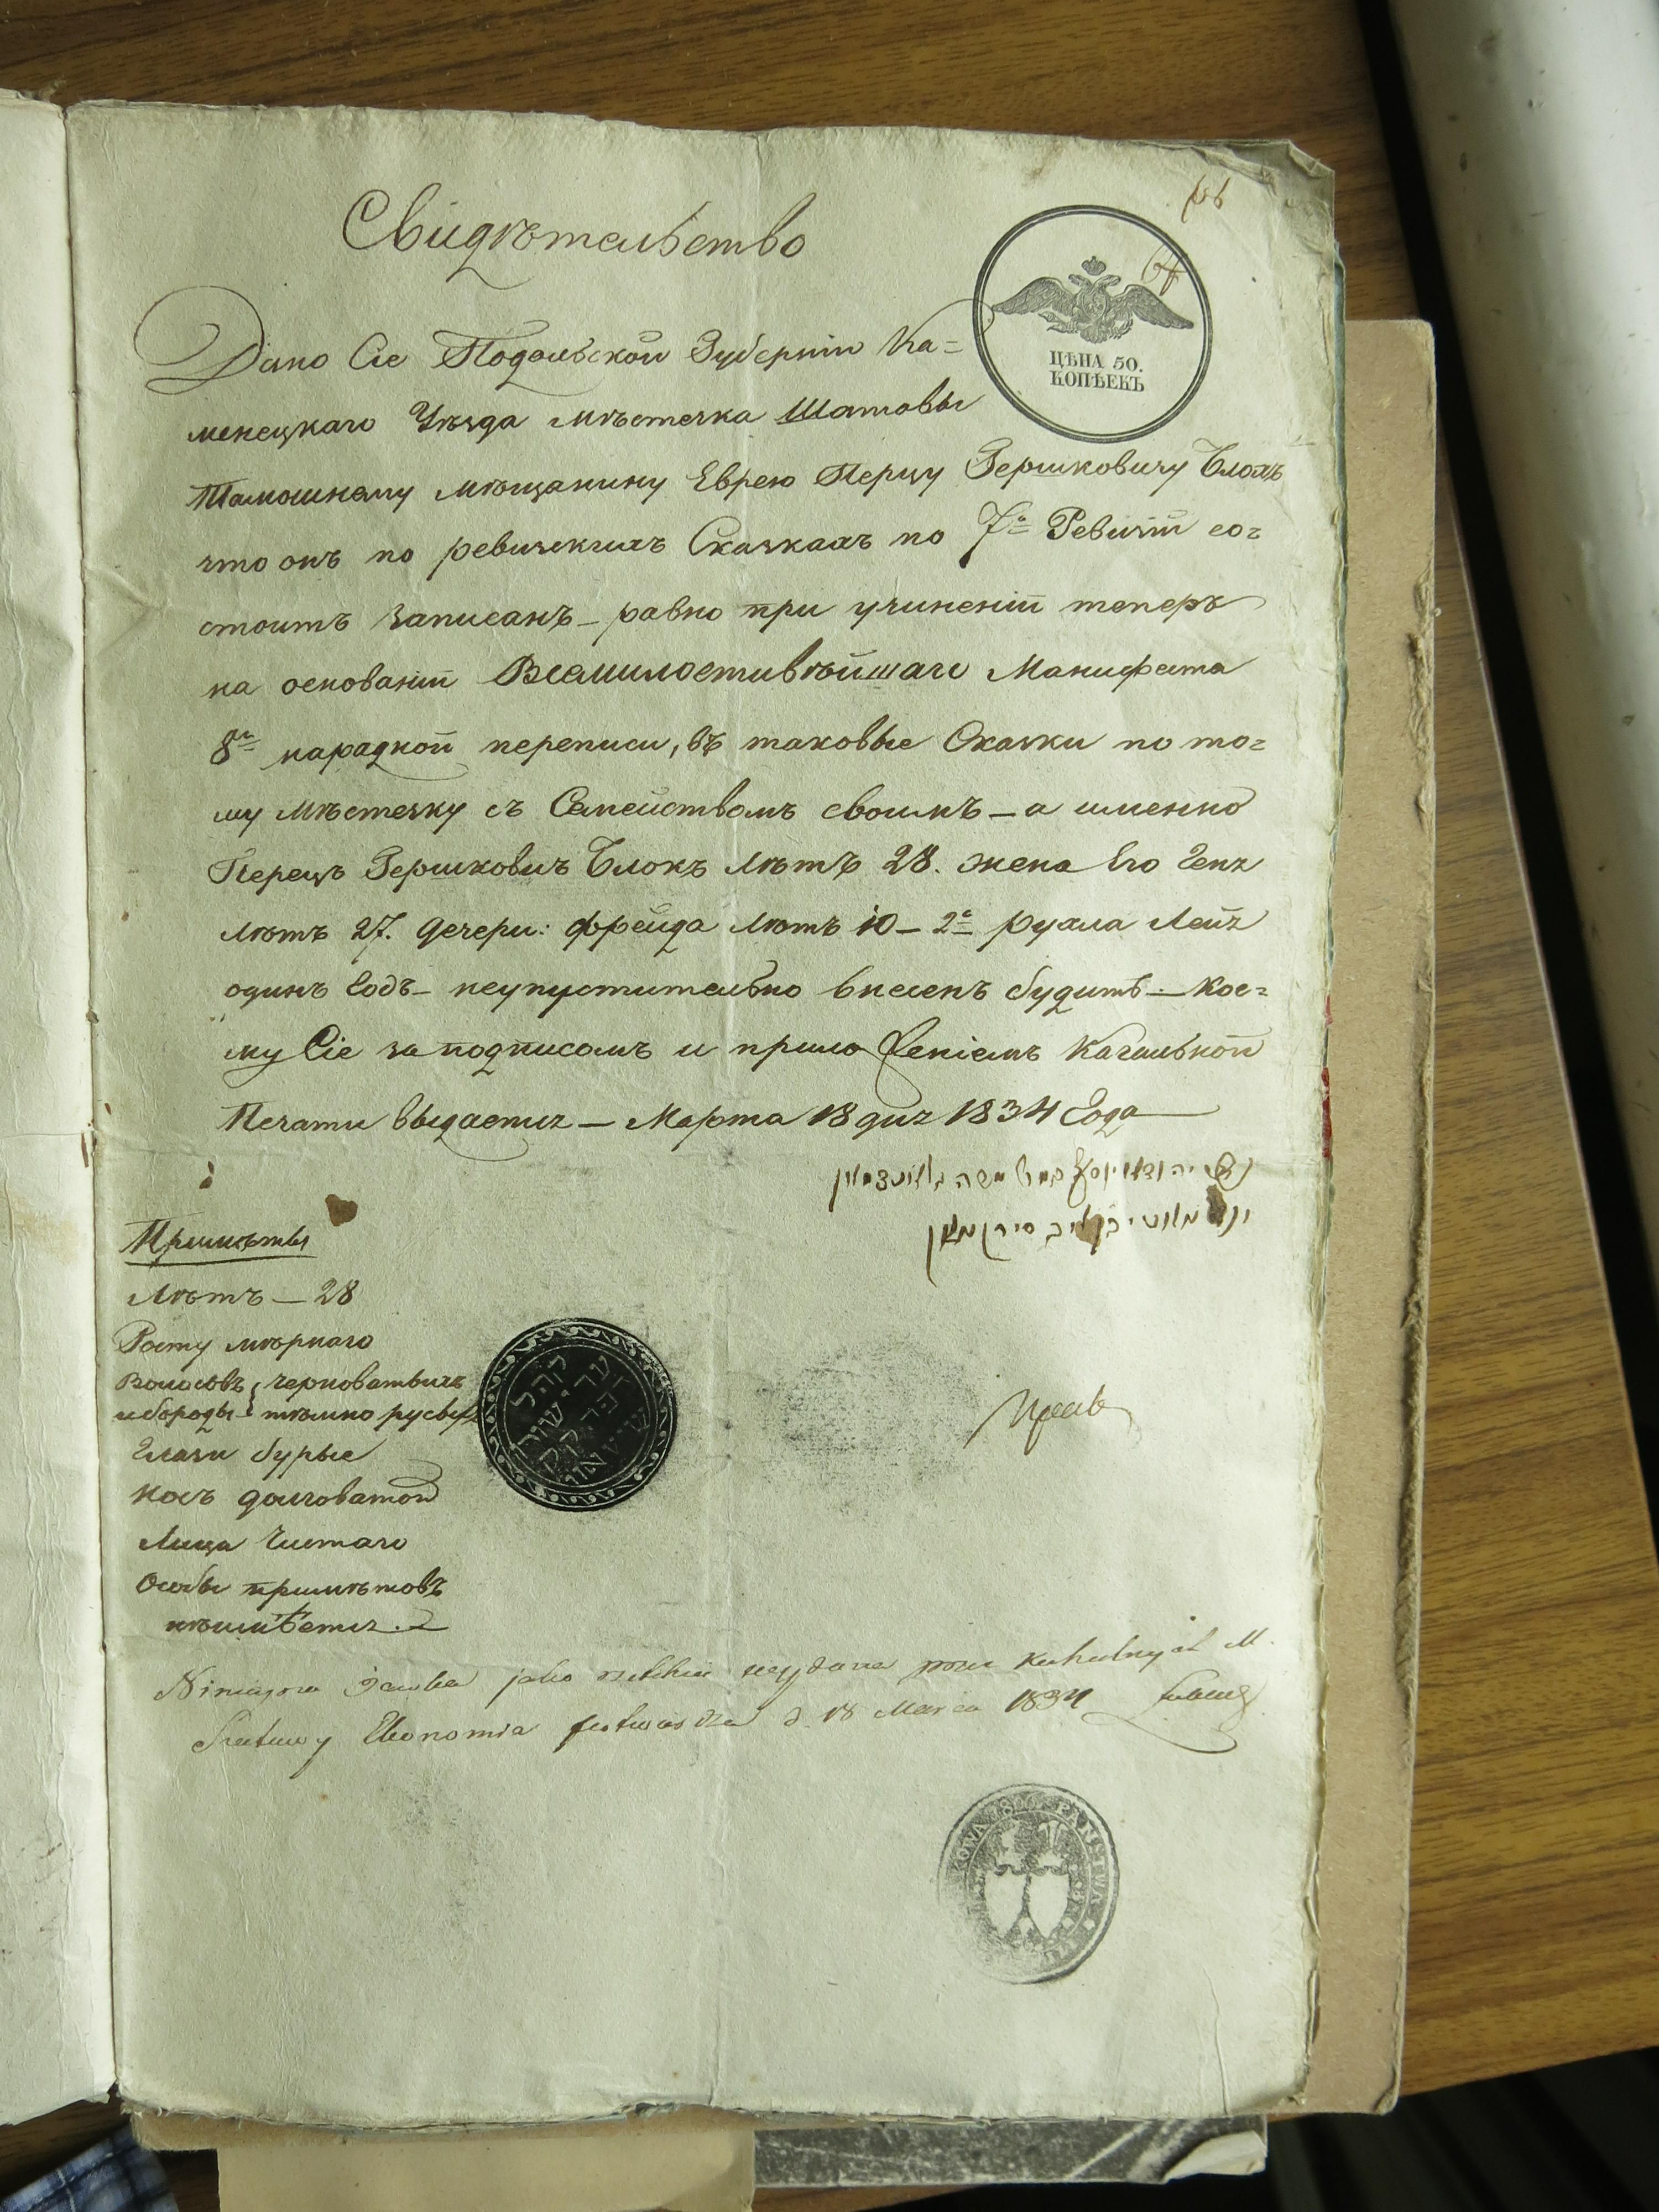 Свидѣтельство
ЦѢНА 50.
КОПѢЕКЪ
Дано Сіе Подольской Губерніи Ка=
менецкаго Уѣзда мѣстечка Шатовы
Тамошнему мѣщанину Еврею Перцу Гершковичу Блохъ
что онъ по ревизскихъ Сказкахъ по 7й Ревизіи со=
стоитъ записанъ – равно при учиненіи теперъ
на основаніи Всемилостивѣйшаго Манифеста
8й народной переписи, въ таковые Сказки по то=
му мѣстечку съ Семействомъ своимъ – а именно
Перецъ Гершковичъ Блохъ лѣтъ 28. жена Его Геня
лѣтъ 27. дочери: фрейда лѣтъ 10 – 2я Лея
одинъ Годъ – неупустительно внесенъ будитъ – кое=
му Сіе за подписомъ и приложеніемъ Кагальной
Печати выдается – Марта 18 дня 1834 Года
יהודא יוסף משה
Примѣты
Лѣтъ – 28
Росту мѣрнаго
Волосовъ черноватыхъ
и бороды тѣмно русый
Глаза бурые
Носъ долговатой
Лица Чистаго
Особы примѣтовъ
неимѣется.
wydane przez Kahalnych M.
Ekonomia d. 18 Marca 1834